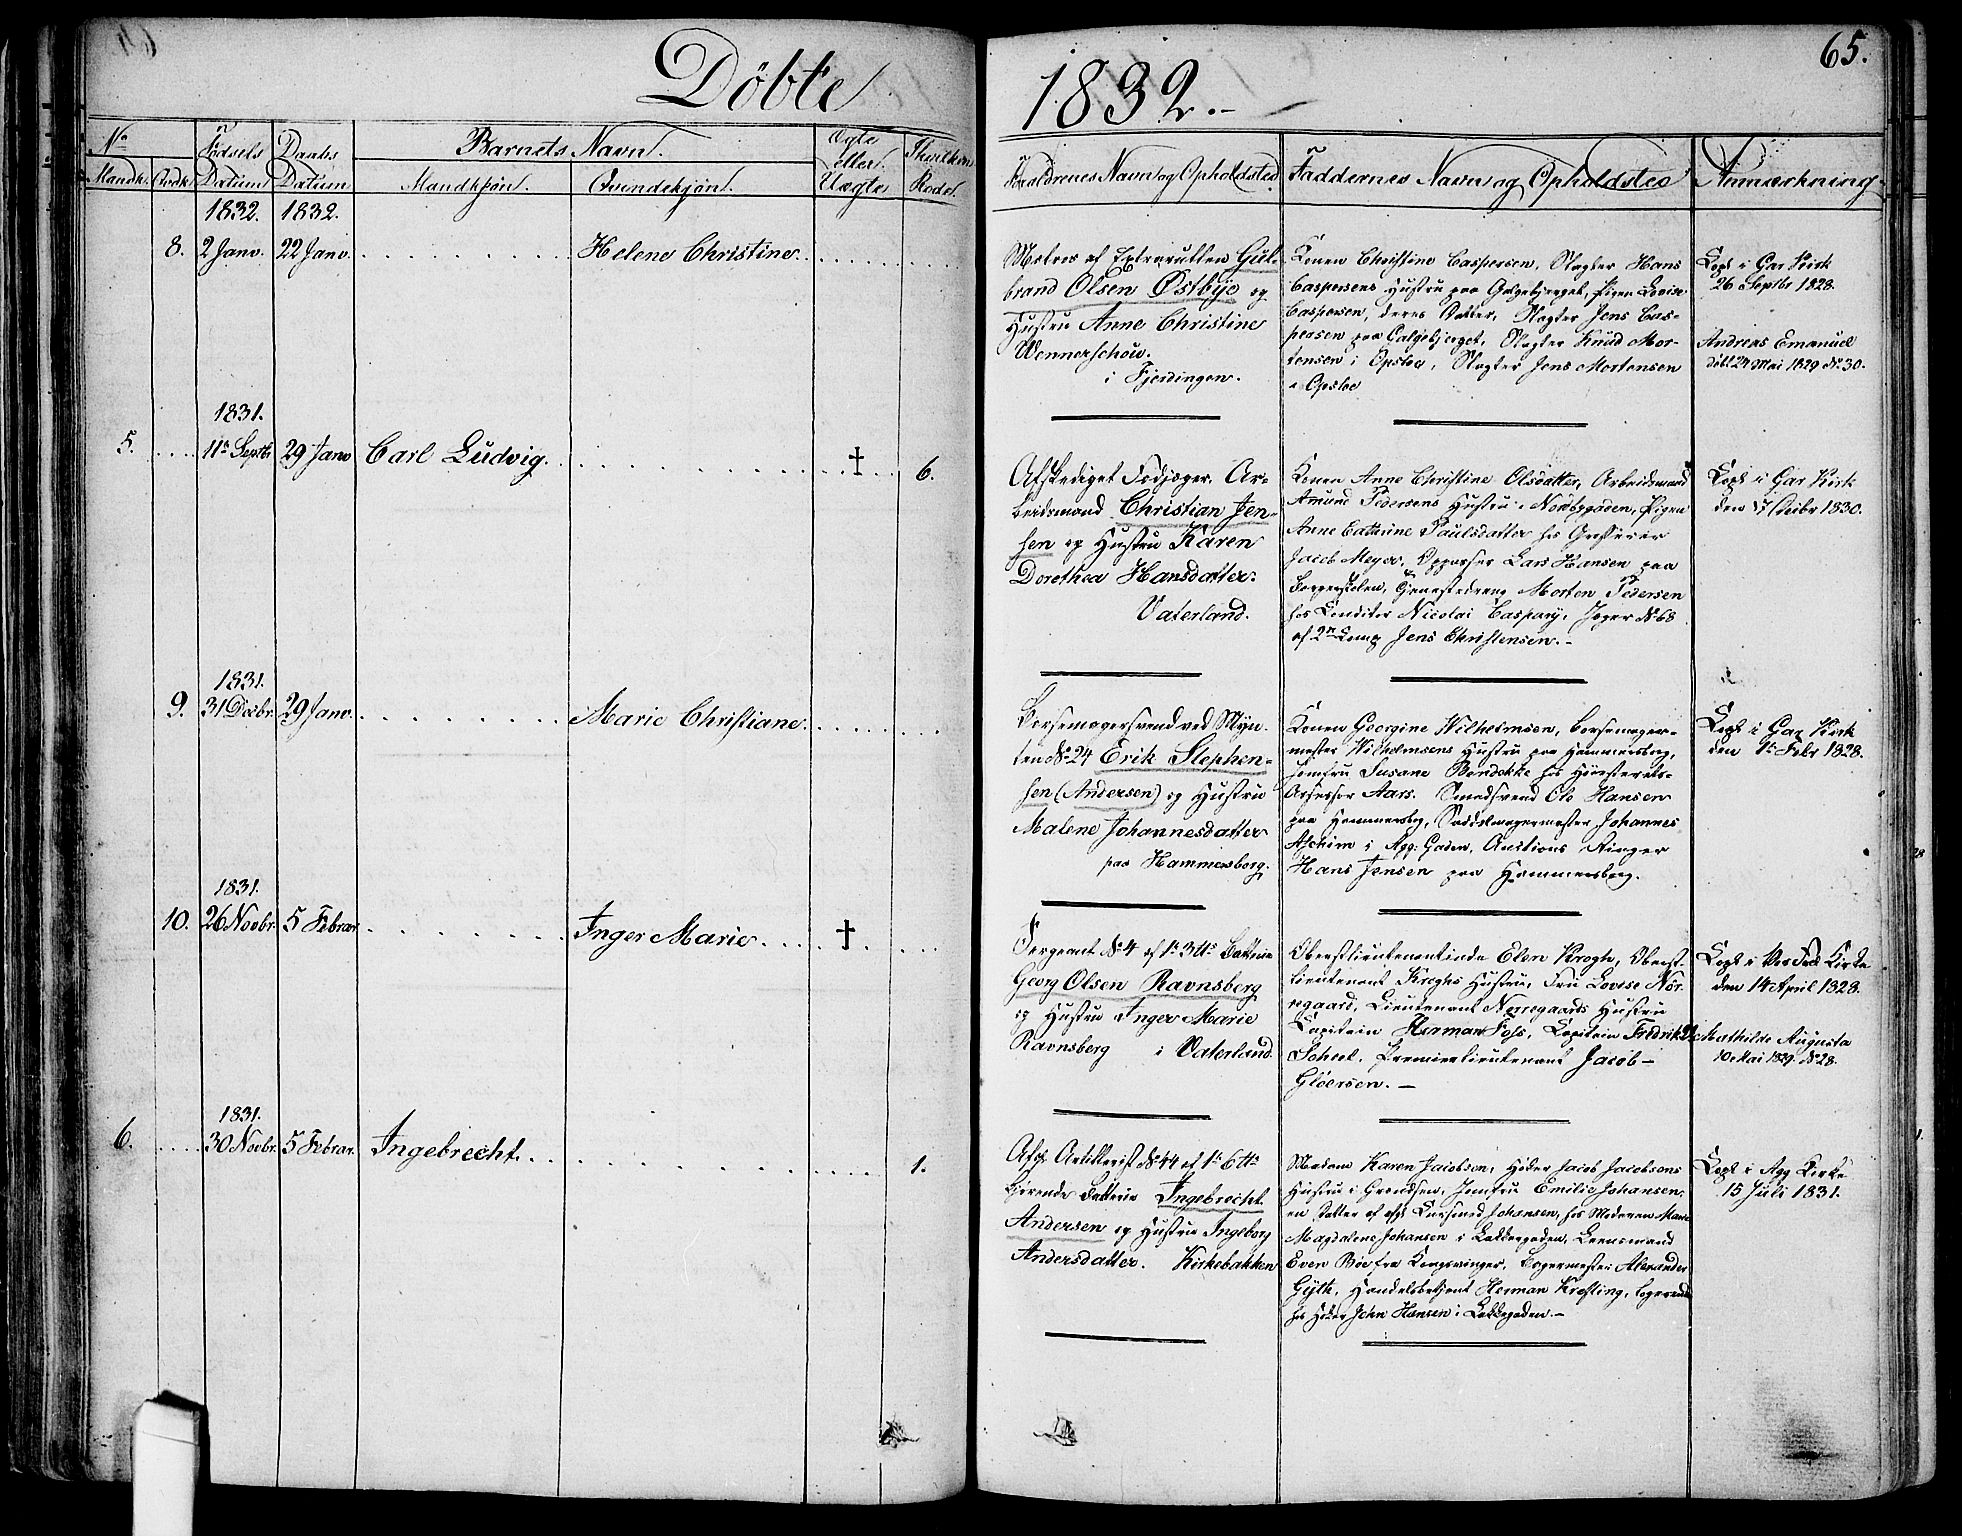 Døbte
1832.
65.
No
Mandk. Qvdk.
Fødsels
Datum
Daabs
Datum
Barnets Navn.
Mandkjøn. Qvindekjøn.
Ægte
eller
Uægte
Forældrenes Navn og Opholdsted
Faddernes Navn og Opholdsted
Anmærkning
1832. 1832.
8. 2 Janv. 22 Janv. Helene Christine.
Gul-
brand Olsen Østbye og
Hustru Anne Christine
Wennerschou.
i Fjerdingen.
Konen Christine Caspersen, Slagter Hans
Caspersens Hustru paa Galgebjerget, Pigen Lovise
Caspersen, deres Datter, Slagter Jens Cas-
persen paa Galgebjerget, Slagter Knud Mor-
tensen i Opsloe, Slagter Jens Mortensen
i Opsloe
Copl i Gar Kirk
26 Septbr 1828.
Andreas Emanuel
døbt 24 Mai 1829 No 30.
1831.
5. 11te Septb 29 Janv Carl Ludvig. † 6.
Afskediget Fodjæger, Ar-
beidsmand Christian Jen-
sen og Hustru Karen
Dorothea Hansdatter.
Vaterland.
Konen Anne Christine Olsdatter, Arbeidsmand
Amund Pedersens Hustru i Pigen
Anne Cathrine Paulsdatter hos
Jacob Meyer, Opparser Lars Hansen paa
Morten Pedersen
hos Conditor Nicolai Caspary, Jæger No 68
af 2n Comp Jens Christensen.
Copl i Gar Kirk
1830.
1831.
9. 31 Decbr. 29 Janv. Marie Christiane.
Børsemagersvend ved Myn-
ten No 24 Erik Stephen-
sen (Andersen) og Hustru
Malene Johannesdatter
paa Hammersborg.
Konen Georgine Wilhelmsen, Børsemager-
mester Wilhelmsens Hustru paa Hammersborg,
Jomfru Susane Bendekke hos Høiesterets-
Assessor Aars. Smedsvend Ole Hansen
paa Hammersbrg, Saddelmagermester Johannes
Aschim i Agg: Gaden, Auctions
Hans Jensen paa Hammersborg.
Copl i Gar Kirk
den 1te Febr 1828.
1831.
10. 26 Novbr. 5 Februar. Inger Marie. †
Sergeant No 4 af
Georg Olsen Ravnsberg
og Hustru Inger Marie
Ravnsberg i Vaterland.
Oberstlieutenantinde Elen Krogh, Oberst-
lieutenant Kroghs Hustru, Fru Lovise Nør-
regaard, Lieutenant Nørregaards Hustru
Capitain Herman Foss, Capitain Fredrik
Scheel, Premierlieutenant Jacob
Gløersen.
den 14 April 1828.
Mathilde Augusta
10 Mai 1829. No 28.
1831.
6. 30 Novbr. 5 Februar. Ingebrecht. 1.
Afsk Artillerist No 44 af
kjørende Batterie Ingebrecht
Andersen og Hustru Ingeborg
Andersdatter. Kirkebakken
Madam Karen Jacobsen, Høker Jacob Jacobsens
Hustru i Grendsen, Jomfru Emilie Johansen,
en Datter af afsk Johansen, hos Moderen Marie
Magdalene Johansen i Lakkegaden, Leensmand
Even Bøe fra Kongsvinger, Bagermester Alexander
Gyth, Handelsbetjent Herman Kræfting, Logerende
hos Høker John Hansen i Lakkegaden.
Copl i Agg Kirke
15 Juli 1831.